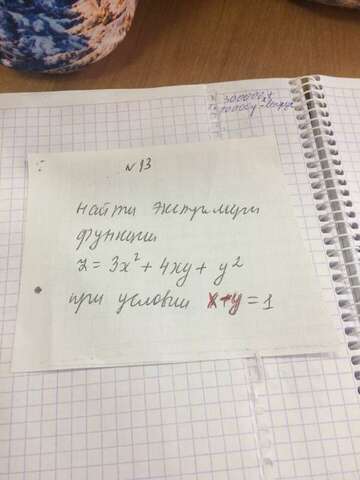 N13
найти экстремум
функции
z = 3x² + 4xy + y²
при условии x+y=1